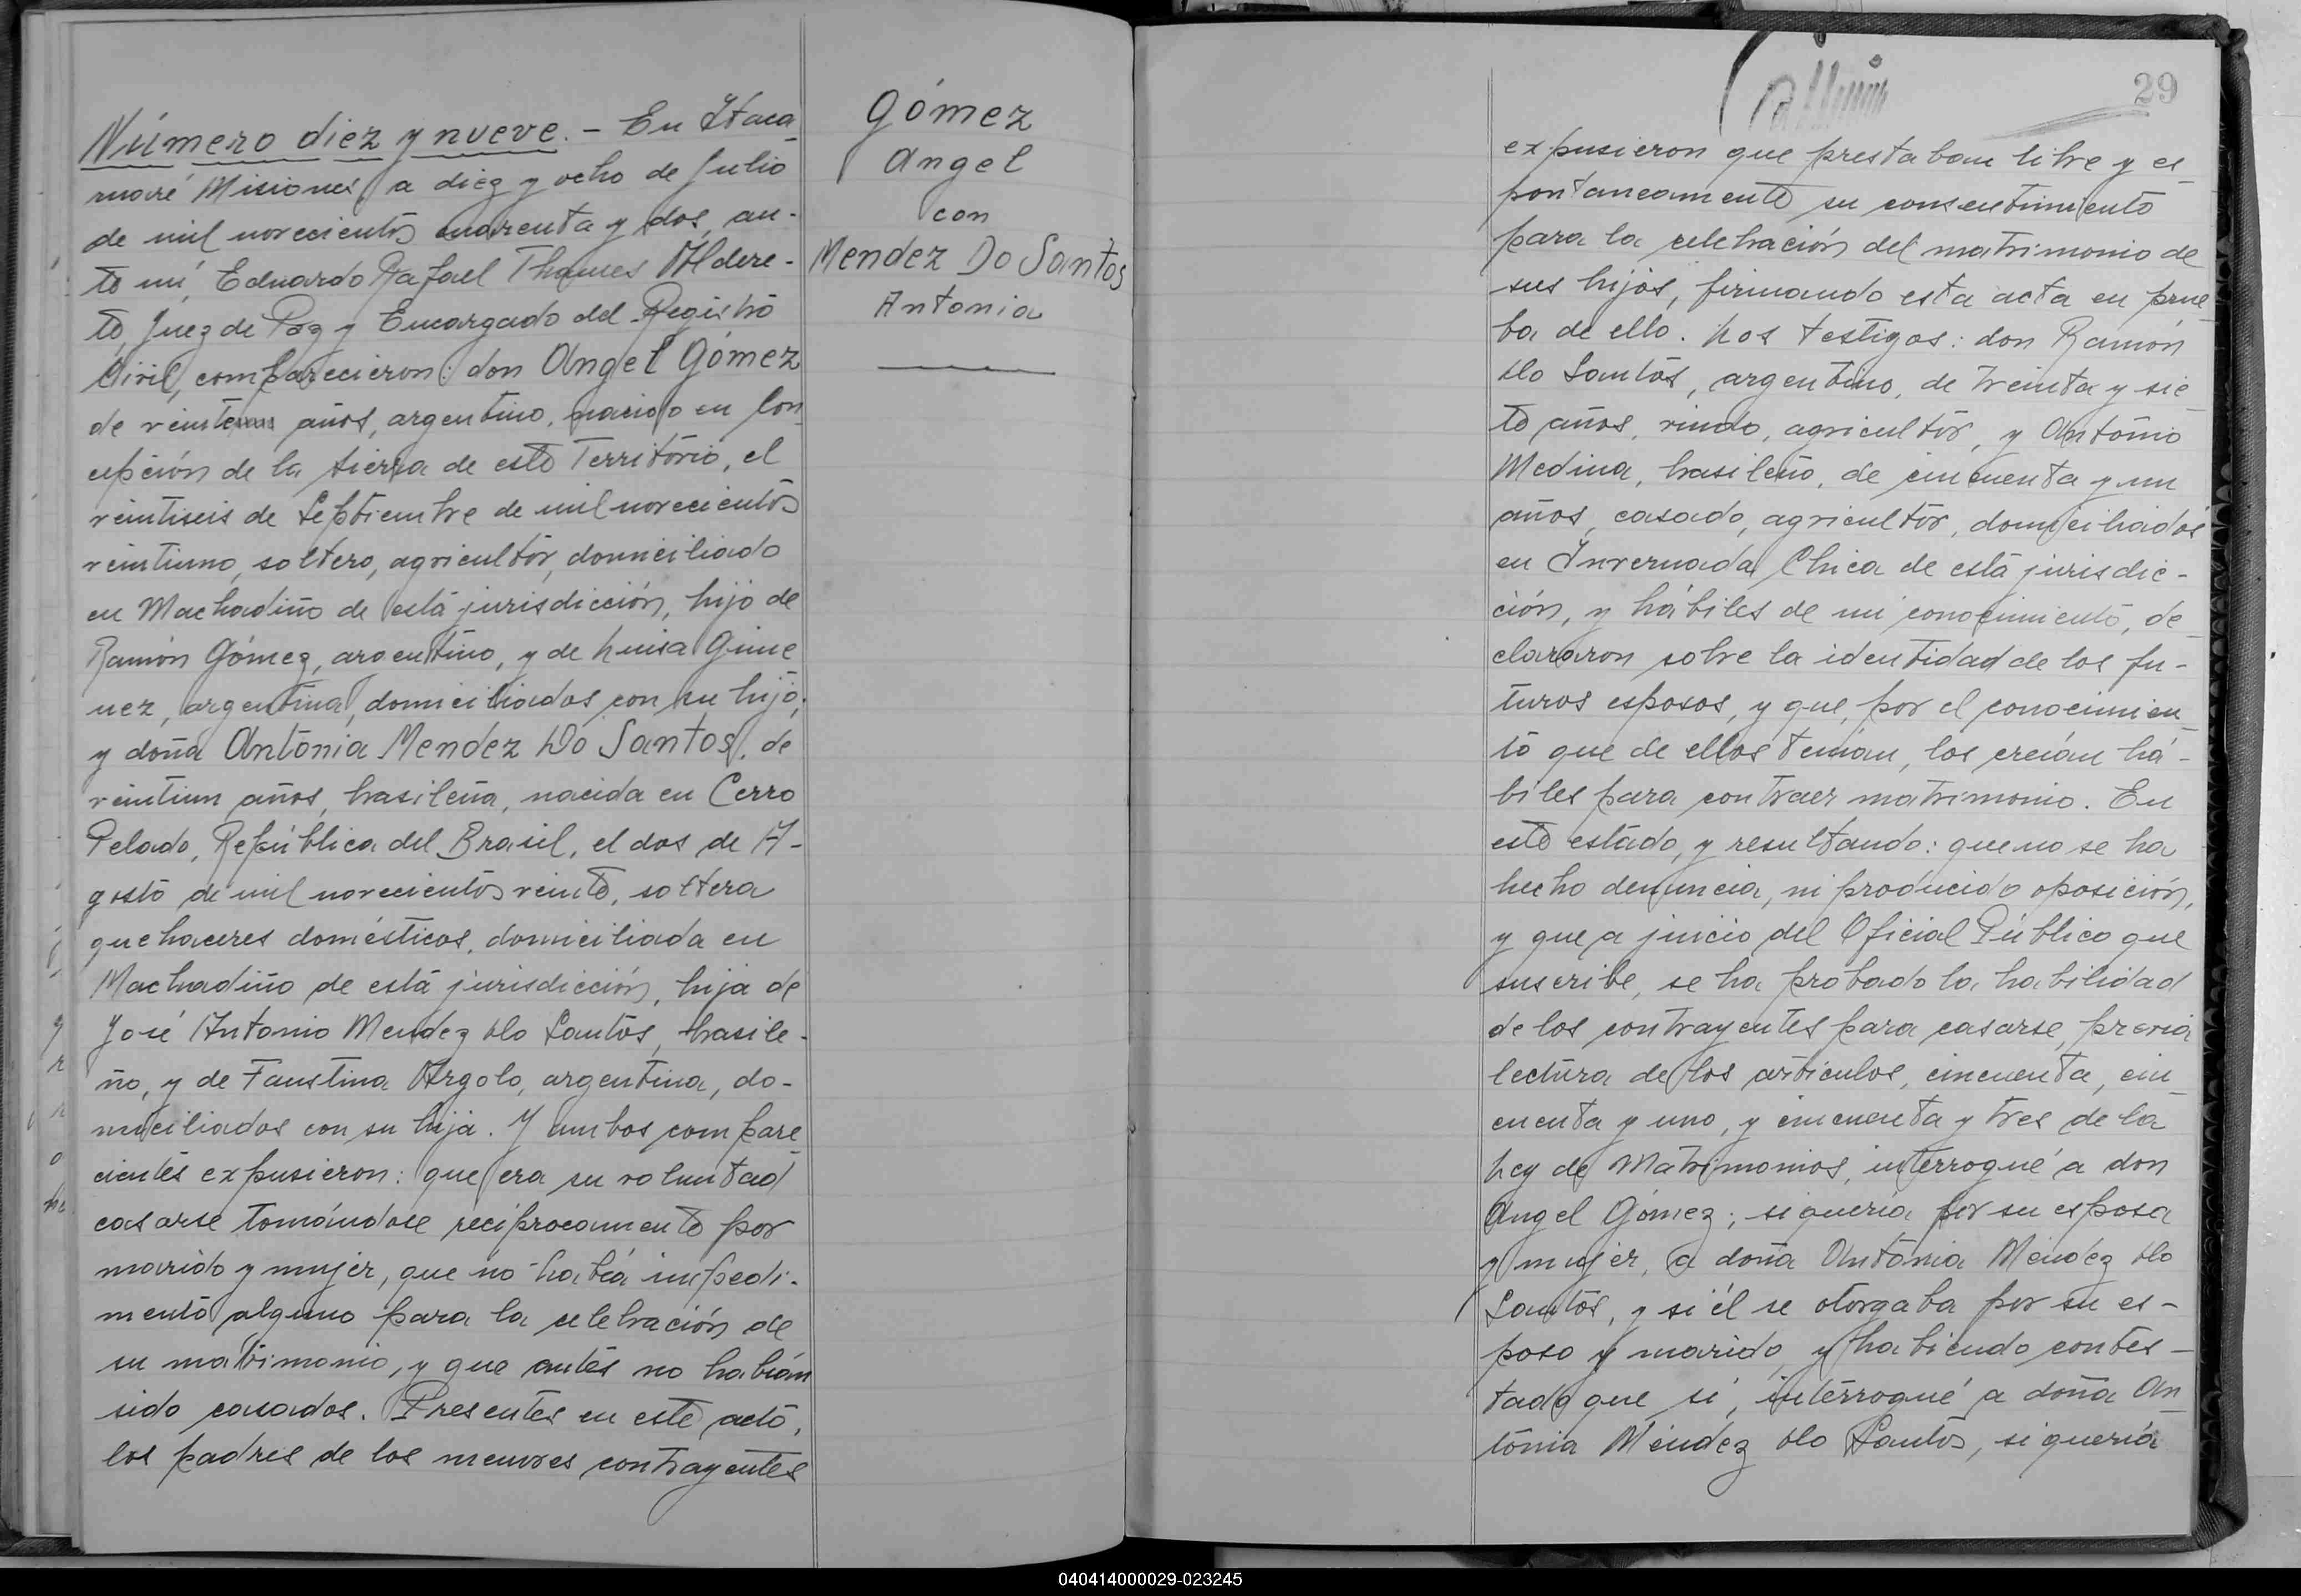 Número diez y nueve. – En Itaca-
ruaré Misiones, a diez y ocho de Julio
de mil novecientos cuarenta y dos, an-
te mí, Eduardo Rafael Thames Aldere-
te, Juez de Paz y Encargado del Registro
Civil, comparecieron: don Angel Gómez
de veinte años, argentino, nacido en Con
cepción de la Sierra de este Territorio, el
veintiseis de Septiembre de mil novecientos
veintiuno, soltero, agricultor, domiciliado
en Machadiño de esta jurisdicción, hijo de
Ramón Gómez, argentino, y de Luisa Gime
nez, argentina, domiciliados con su hijo;
y doña Antonia Mendez Do Santos, de
veintiun años, brasileña, nacida en Cerro
Pelado, República del Brasil, el dos de A-
gosto de mil novecientos veinte, soltera
quehaceres domésticos, domiciliada en
Machadiño de esta jurisdicción, hija de
José Antonio Mendez do Santos, brasile-
ño, y de Faustina Argolo, argentina, do-
miciliados con su hija. Y ambos compare
cientes expusieron: que era su voluntad
casarse tomándose reciprocamente por
marido y mujer, que no había impedi-
mento alguno para la celebración de
su matrimonio, y que antes no habían
sido casados. Presentes en este acto,
los padres de los menores contrayentes
Gómez
Angel
con
Mendez Do Santos
Antonia
29
expusieron que prestaban libre y es-
pontaneamente su consentimiento
para la celebración del matrimonio de
sus hijos, firmando esta acta en prue
ba de ello. Los testigos: don Ramón
do Santos, argentino, de treinta y sie
te años, viudo, agricultor, y Antonio
Medina, brasileño, de cincuenta y un
años, casado, agricultor, domiciliados
en Invernada Chica de esta jurisdic-
ción, y hábiles de mi conocimiento, de-
clararon sobre la identidad de los fu-
turos esposos, y que, por el conocimien-
to que de ellos tenían, los creían há-
biles para contraer matrimonio. En
este estado, y resultando: que no se ha
hecho denuncia, ni producido oposición,
y que a juicio del Oficial Público que
suscribe, se ha probado la habilidad
de los contrayentes para casarse, previa
lectura de los artículos, cincuenta, cin-
cuenta y uno, y cincuenta y tres de la
Ley de Matrimonios, interrogué a don
Angel Gómez; si quería por su esposa
y mujer, a doña Antonia Mendez do
Santos, y si él se otorgaba por su es-
poso y marido, y habiendo contes-
tado que si, interrogué a doña An-
tonia Mendez do Santos, si quería
040414000029-023245